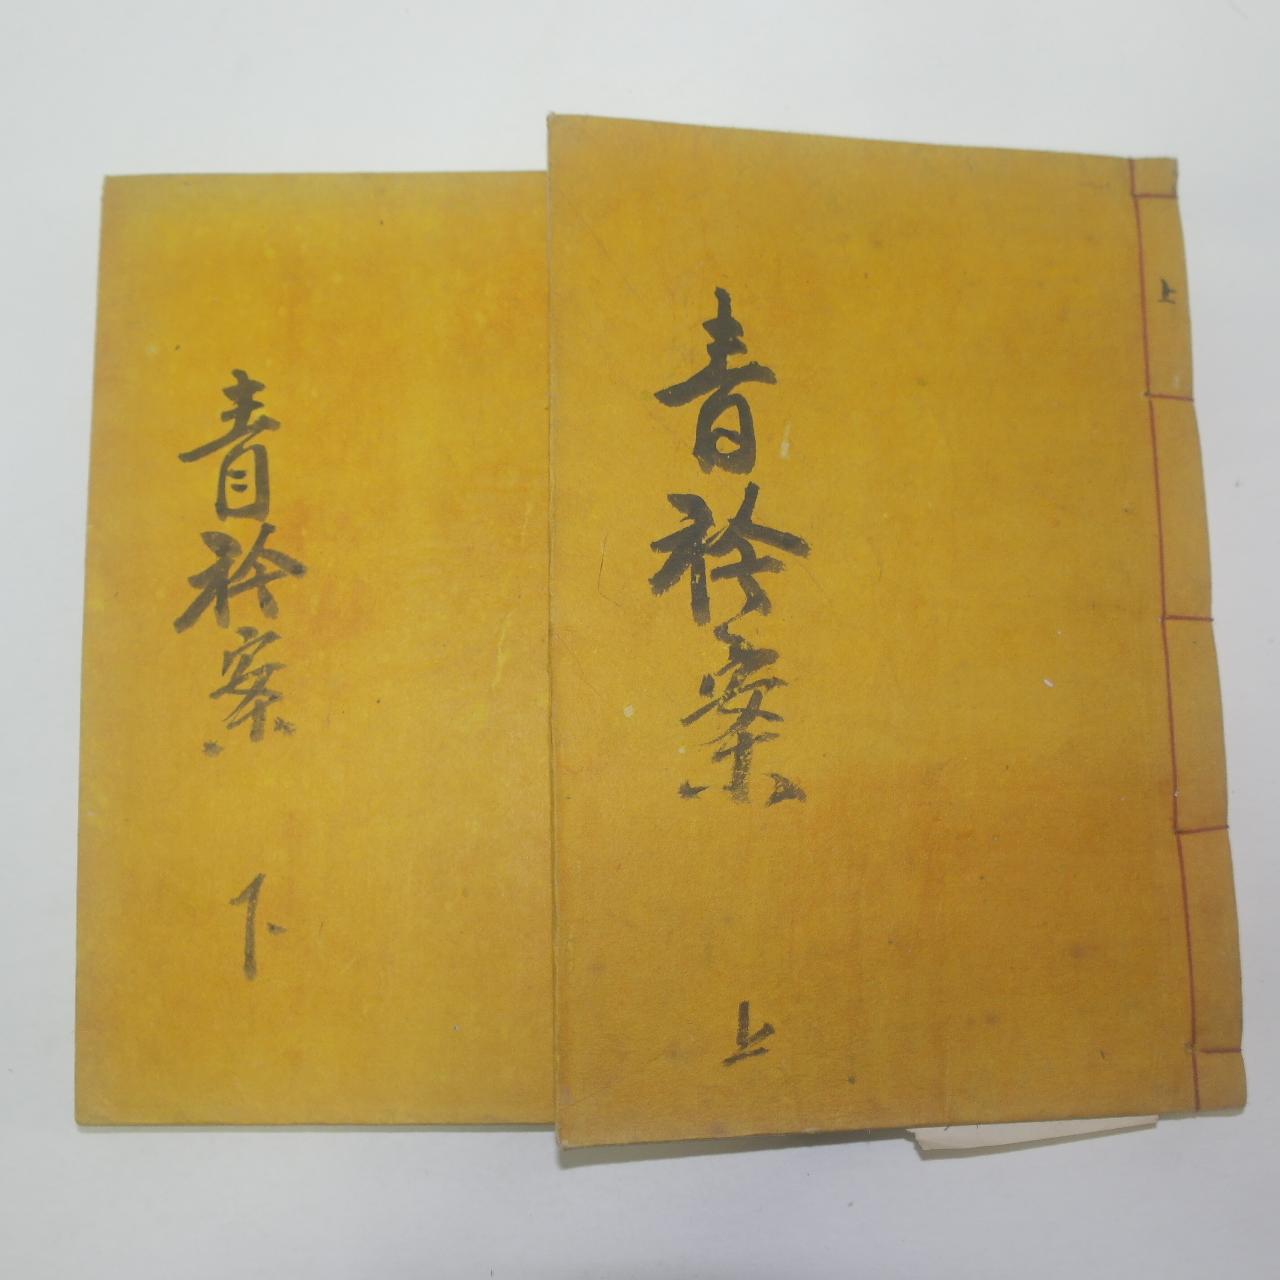 青衿案
上
上
青衿案
下